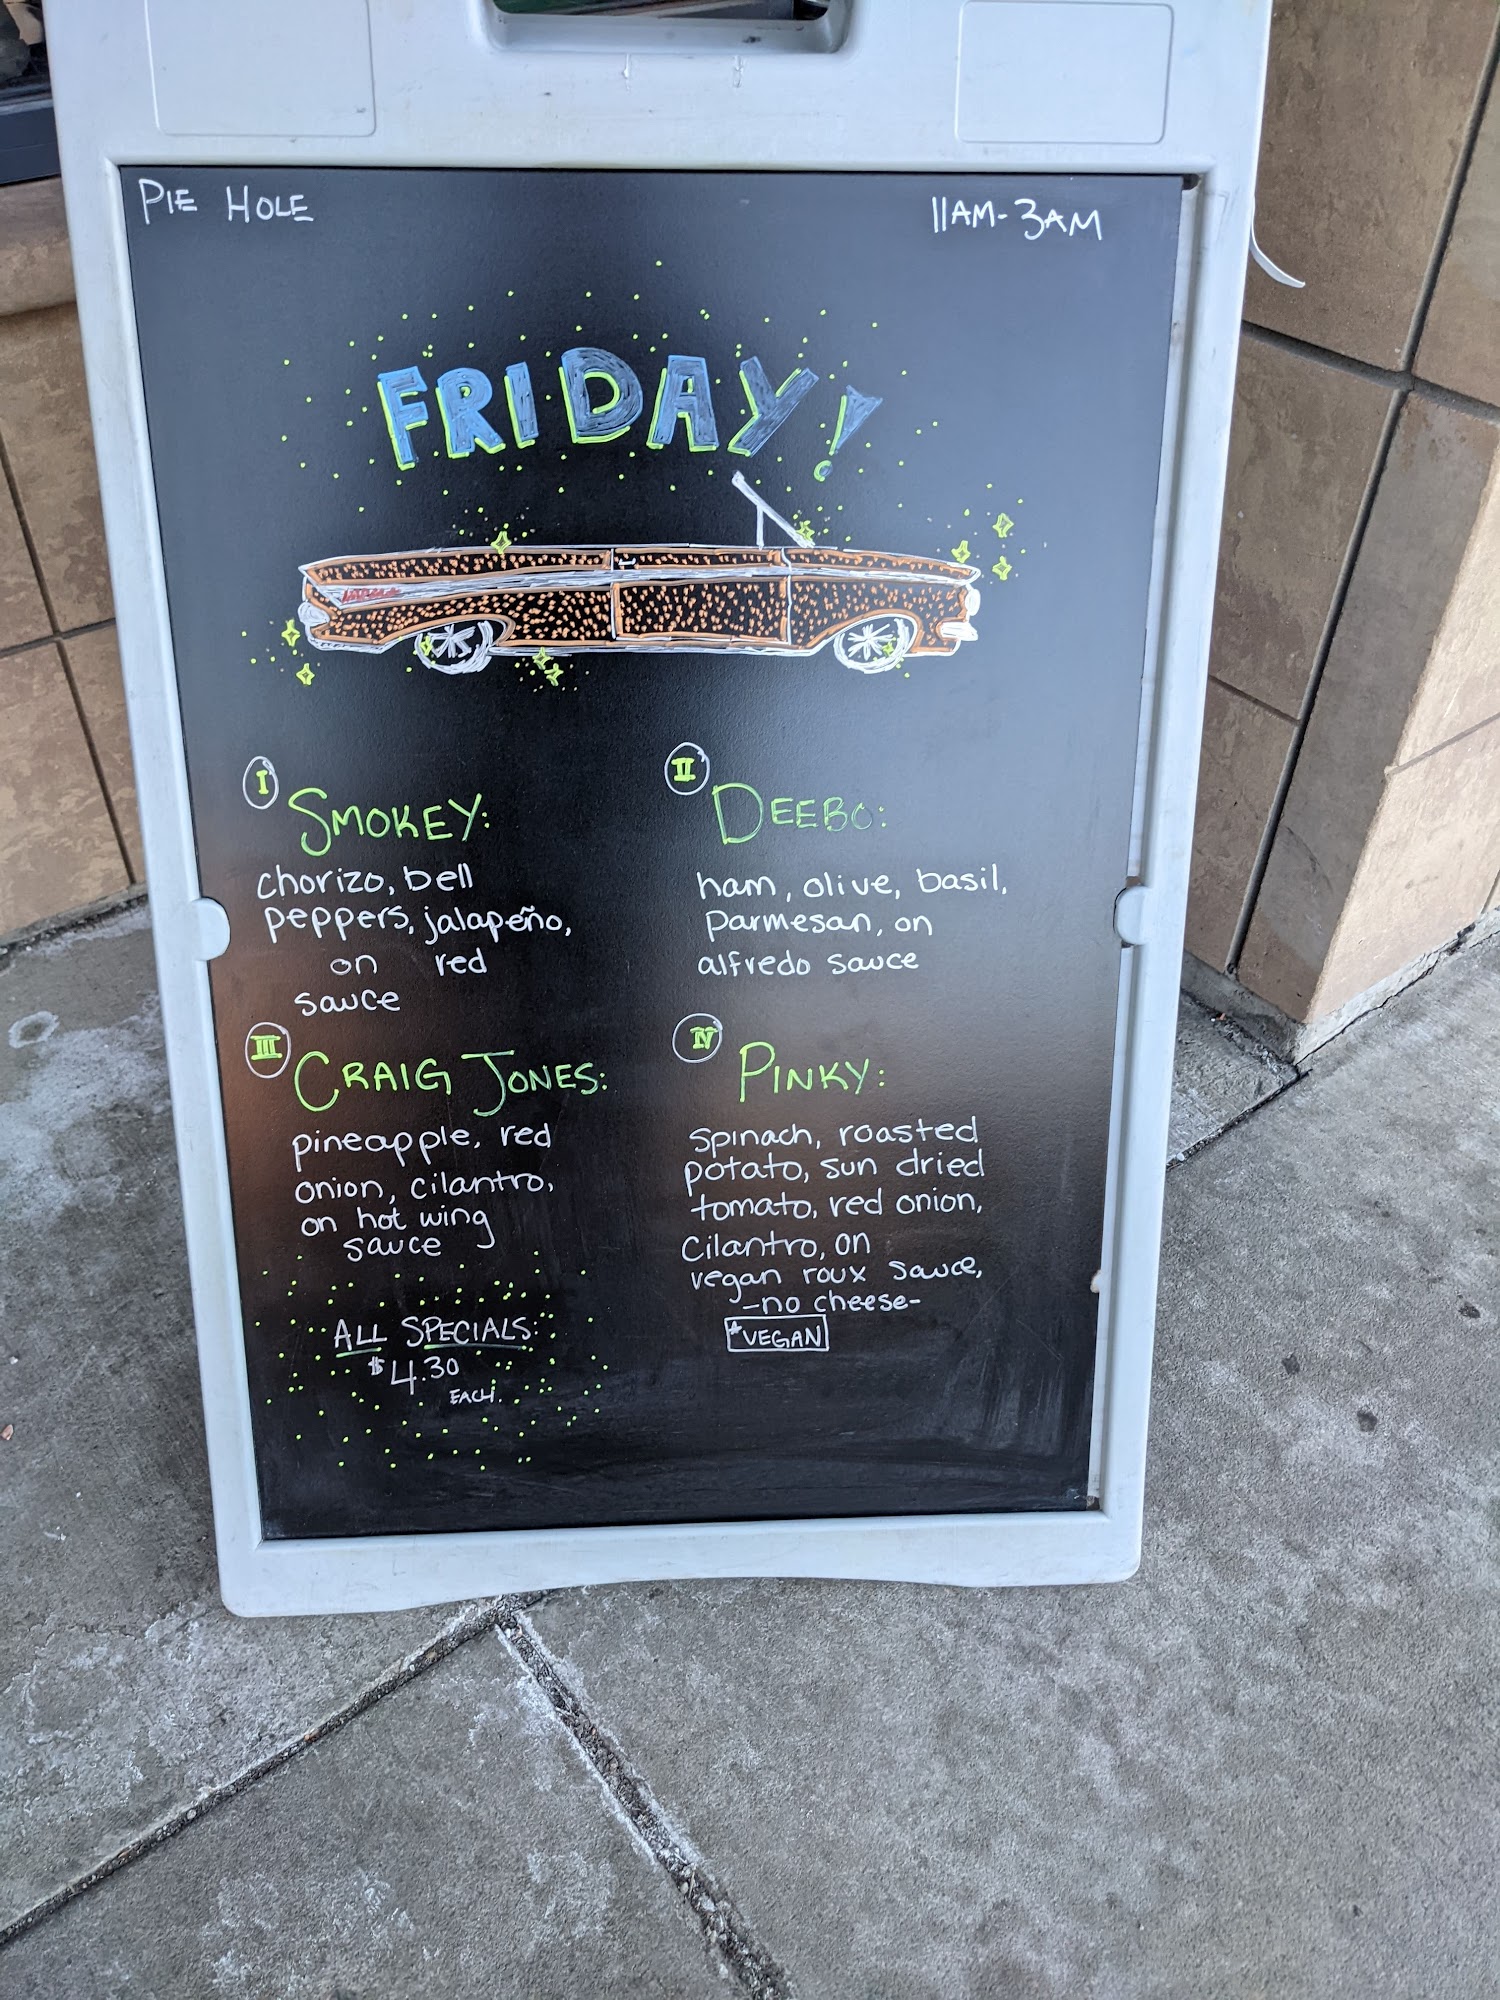 PIE HOLE
11AM-3AM
FRIDAY!
I
SMOKEY:
chorizo, bell
peppers, jalapeño,
on red
sauce
II
DEEBO:
ham, olive, basil,
parmesan, on
alfredo sauce
III
CRAIG JONES:
pineapple, red
onion, cilantro,
on hot wing
sauce
IV
PINKY:
spinach, roasted
potato, sun dried
tomato, red onion,
cilantro, on
vegan roux sauce,
-no cheese-
*VEGAN
ALL SPECIALS:
$4.30
EACH.